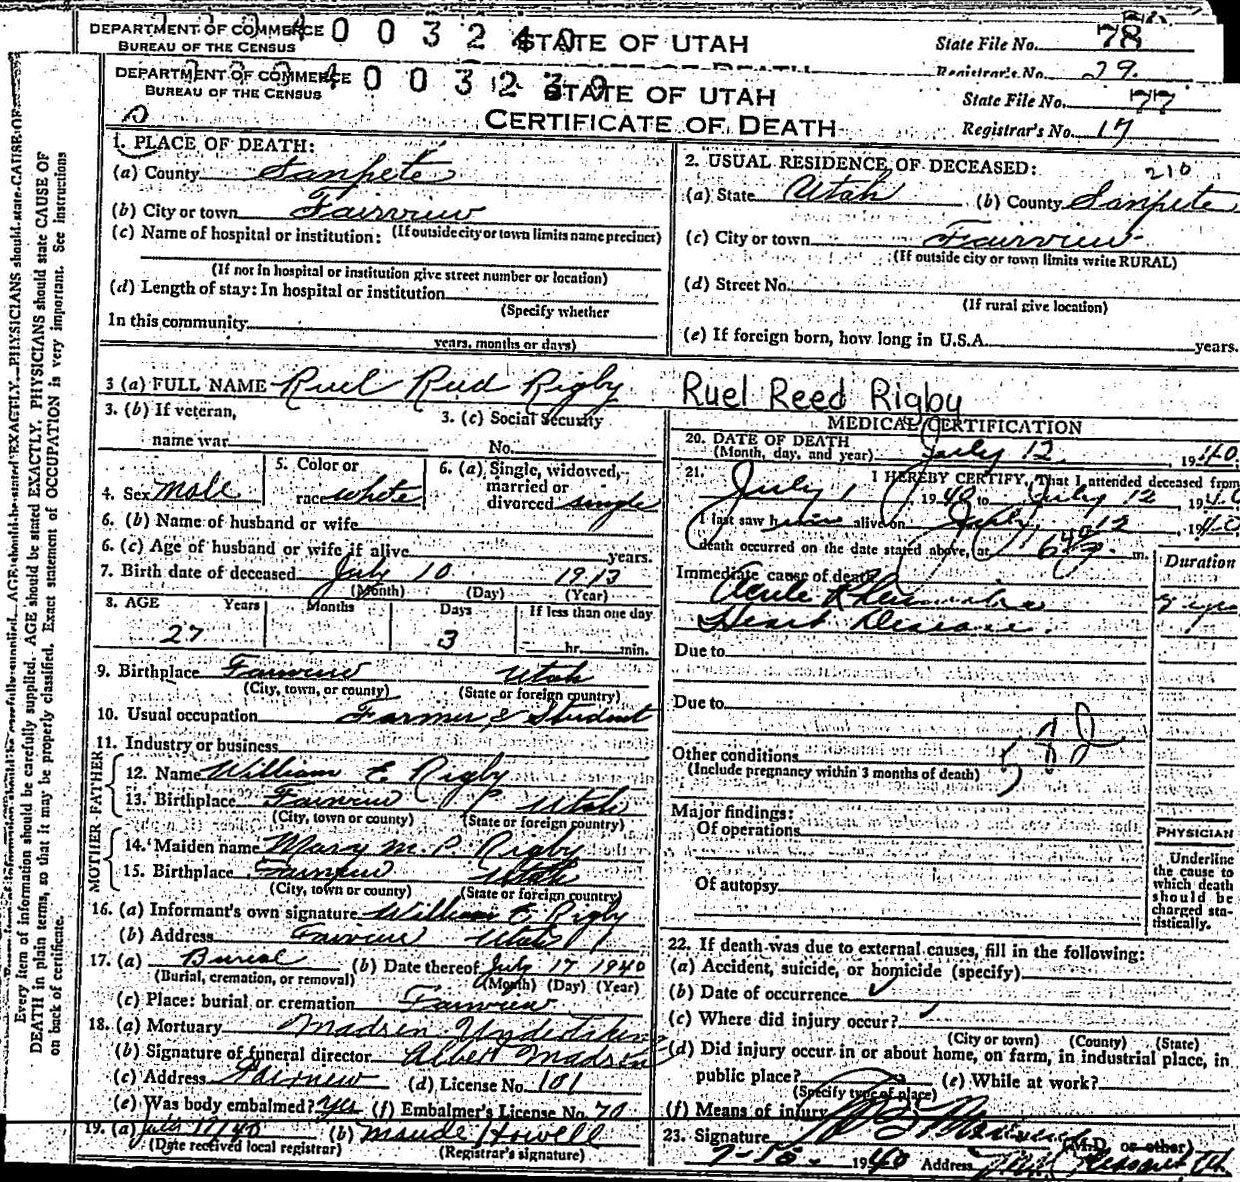 DEPARTMENT OF COMMERCE
BUREAU OF THE CENSUS
4003240
STATE OF UTAH
State File No. 78
Registrar's No. 29
DEPARTMENT OF COMMERCE
BUREAU OF THE CENSUS
4003239
STATE OF UTAH
CERTIFICATE OF DEATH
State File No. 77
Registrar's No. 17
Every item of information should be carefully supplied. AGE should be stated EXACTLY. PHYSICIANS should state CAUSE OF
DEATH in plain terms, so that it may be properly classified. Exact statement of OCCUPATION is very important. See instructions
on back of certificate.
1. PLACE OF DEATH:
(a) County Sanpete
(b) City or town Fairview
(If outside city or town limits name precinct)
(c) Name of hospital or institution:
(If not in hospital or institution give street number or location)
(d) Length of stay: In hospital or institution
(Specify whether
In this community
years, months or days)
2. USUAL RESIDENCE OF DECEASED: 210
(a) State Utah (b) County Sanpete
(c) City or town Fairview
(If outside city or town limits write RURAL)
(d) Street No.
(If rural give location)
(e) If foreign born, how long in U.S.A. years.
3 (a) FULL NAME Ruel Reed Rigby
Ruel Reed Rigby
3. (b) If veteran,
name war
3. (c) Social Security
No.
4. Sex Male
5. Color or
race white
6. (a) Single, widowed,
married or
divorced single
6. (b) Name of husband or wife
6. (c) Age of husband or wife if alive years.
7. Birth date of deceased July 10 1913
(Month) (Day) (Year)
8. AGE Years Months Days If less than one day
27 3 hr. min.
9. Birthplace Fairview Utah
(City, town, or county) (State or foreign country)
10. Usual occupation Farmer & Student
11. Industry or business
FATHER
12. Name William E Rigby
13. Birthplace Fairview Utah
(City, town or county) (State or foreign country)
MOTHER
14. Maiden name Mary M. P. Rigby
15. Birthplace Fairview Utah
(City, town or county) (State or foreign country)
16. (a) Informant's own signature William E Rigby
(b) Address Fairview Utah
17. (a) Burial (b) Date thereof July 17 1940
(Burial, cremation, or removal) (Month) (Day) (Year)
(c) Place: burial or cremation Fairview
18. (a) Mortuary Madsen Undertaking
(b) Signature of funeral director Albert Madsen
(c) Address Fairview (d) License No. 101
(e) Was body embalmed? Yes (f) Embalmer's License No. 70
19. (a) (b) Maude Howell
(Date received local registrar) (Registrar's signature)
MEDICAL CERTIFICATION
20. DATE OF DEATH
(Month, day, and year) July 12, 1940
21. I HEREBY CERTIFY, That I attended deceased from
July 1 1940 to July 12, 1940
I last saw him alive on July 12, 1940
death occurred on the date stated above, at m.
Duration
Immediate cause of death
Acute Rheumatic
Heart Disease.
Due to
Due to
Other conditions
(Include pregnancy within 3 months of death)
Major findings:
Of operations
Of autopsy
PHYSICIAN
Underline
the cause to
which death
should be
charged sta-
tistically.
22. If death was due to external causes, fill in the following:
(a) Accident, suicide, or homicide (specify)
(b) Date of occurrence
(c) Where did injury occur?
(City or town) (County) (State)
(d) Did injury occur in or about home, on farm, in industrial place, in
public place? (e) While at work?
(Specify type of place)
(f) Means of injury
23. Signature (M.D. or other)
1940 Address